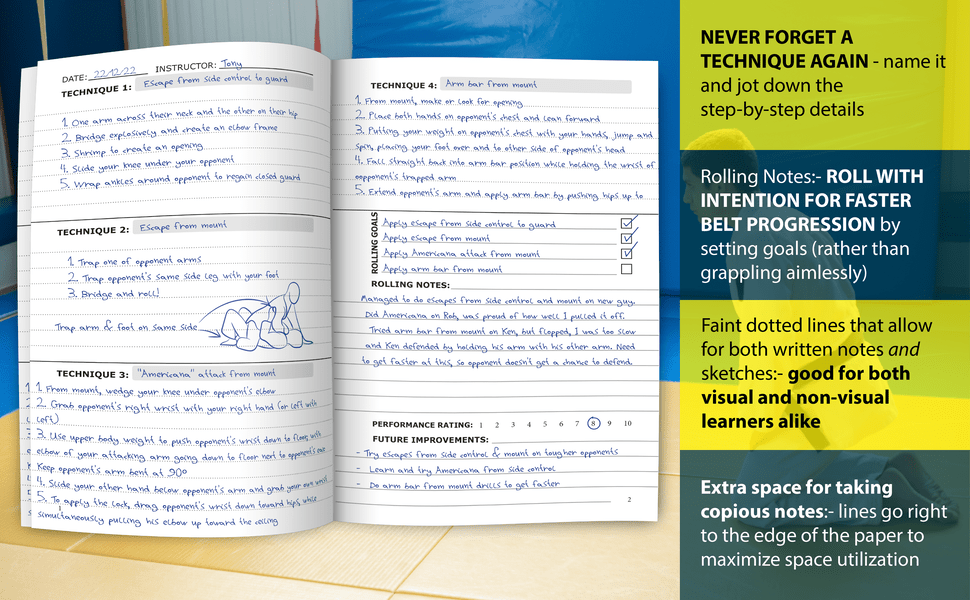 DATE: 22/12/22 INSTRUCTOR: Tony
TECHNIQUE 1: Escape from side control to guard
1. One arm across their neck and the other on their hip
2. Bridge explosively and create an elbow frame
3. Shrimp to create an opening
4. Slide your knee under your opponent
5. Wrap ankles around opponent to regain closed guard
TECHNIQUE 2: Escape from mount
1. Trap one of opponent arms
2. Trap opponent's same side leg with your foot
3. Bridge and roll!
Trap arm & foot on same side
TECHNIQUE 3: "Americana" attack from mount
1. From mount, wedge your knee under opponent's elbow
2. Grab opponent's right wrist with your right hand (or left with
left)
3. Use upper body weight to push opponent's wrist down to floor, with
elbow of your attacking arm going down to floor next to opponent's ear.
Keep opponent's arm bent at 90º
4. Slide your other hand below opponent's arm and grab your own wrist
5. To apply the lock, drag opponent's wrist down toward hips, while
simultaneously pulling his elbow up toward the ceiling
TECHNIQUE 4: Arm bar from mount
1. From mount, make or look for opening
2. Place both hands on opponent's chest and lean forward
3. Putting your weight on opponent's chest with your hands, jump and
spin, placing your foot over and to other side of opponent's head
4. Fall straight back into arm bar position while holding the wrist of
oopponent's trapped arm
5. Extend opponent's arm and apply arm bar by pushing hips up to
ROLLING GOALS
Apply escape from side control to guard
Apply escape from mount
Apply Americana attack from mount
Apply arm bar from mount
ROLLING NOTES:
Managed to do escapes from side control and mount on new guy.
Did Americana on Rob, was proud of how well I pulled it off.
Tried arm bar from mount on Ken, but flopped, I was too slow
and Ken defended by holding his arm with his other arm. Need
to get faster at this, so opponent doesn't get a chance to defend.
PERFORMANCE RATING: 1 2 3 4 5 6 7 8 9 10
FUTURE IMPROVEMENTS:
- Try escapes from side control & mount on tougher opponents
- Learn and try Americana from side control
- Do arm bar from mount drills to get faster
2
NEVER FORGET A
TECHNIQUE AGAIN - name it
and jot down the
step-by-step details
Rolling Notes:- ROLL WITH
INTENTION FOR FASTER
BELT PROGRESSION by
setting goals (rather than
grappling aimlessly)
Faint dotted lines that allow
for both written notes and
sketches:- good for both
visual and non-visual
learners alike
Extra space for taking
copious notes:- lines go right
to the edge of the paper to
maximize space utilization